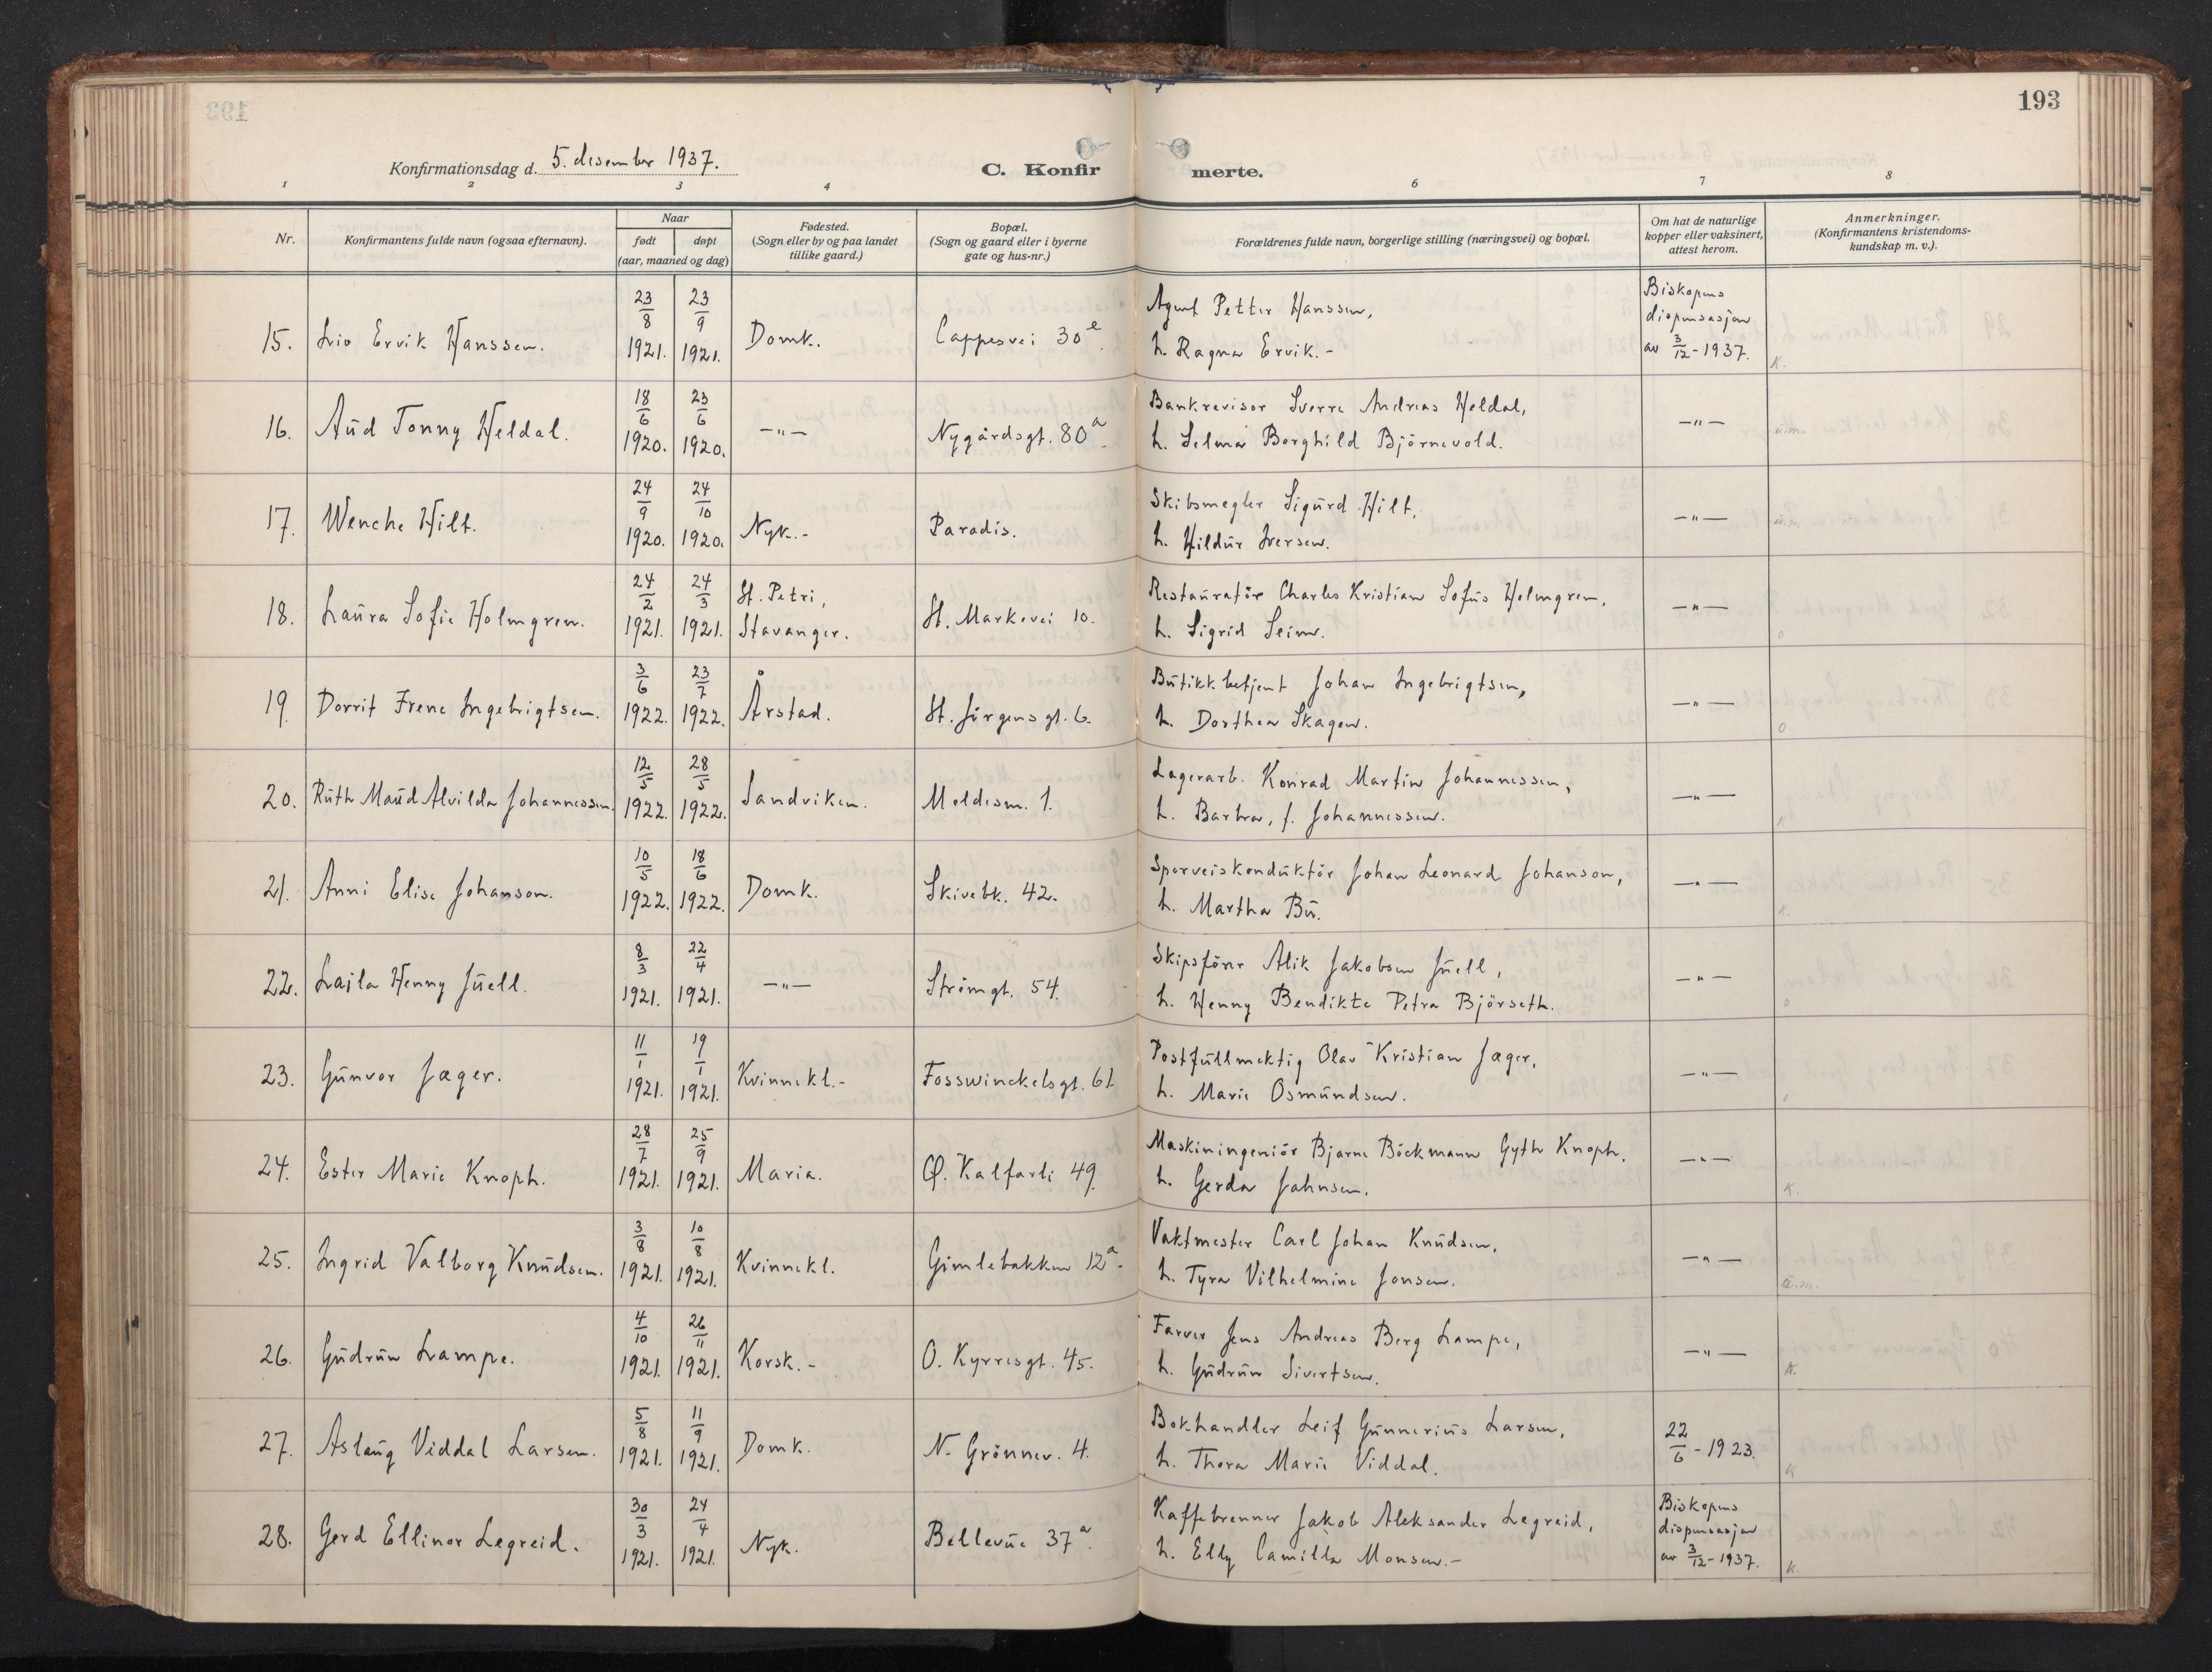 193
Konfirmationsdag d. 5. desember 1937.
C. Konfirmerte.
1 2 3 4 6 7 8
Nr.
Konfirmantens fulde navn (ogsaa efternavn).
Naar
født
døpt
(aar, maaned og dag)
Fødested.
(Sogn eller by og paa landet
tillike gaard.)
Bopæl.
(Sogn og gaard eller i byerne
gate og hus-nr.)
Forældrenes fulde navn, borgerlige stilling (næringsvei) og bopæl.
Om hat de naturlige
kopper eller vaksinert,
attest herom.
Anmerkninger.
(Konfirmantens kristendoms-
kundskap m. v.).
15. Liv Ervik Hanssen. 23/8 1921. 23/9 1921. Domk. Cappesvei 30e.
Agent Petter Hanssen,
h. Ragna Ervik.-
Biskopens
dispensasjon
av 3/12-1937.
K.
16. Aud Tonny Heldal. 18/6 1920. 23/6 1920. —"— Nygårdsgt. 80a.
Bankrevisor Sverre Andreas Heldal,
h. Selma Borghild Björnevold.
—"—
ü.m.
17. Wenche Hilt. 24/9 1920. 24/10 1920. Nyk.- Paradis.
Skibsmegler Sigurd Hilt,
h. Hildur Iversen.
—"—
ü.m.
18. Laura Sofie Holmgren. 24/2 1921. 24/3 1921. St. Petri,
Stavanger. St. Markevei 10.
Restauratör Charles Kristian Sofus Holmgren,
h. Sigrid Seim.
—"—
o
19. Dorrit Irene Ingebrigtsen. 3/6 1922. 23/7 1922. Årstad. St. Jörgensgt. 6.
Butikkbetjent Johan Ingebrigtsen,
h. Dorthea Skagen.
—"—
o.
20. Ruth Maud Alvilda Johannessen. 12/5 1922. 28/5 1922. Sandviken. Meldesm. 1.
Lagerarb. Konrad Martin Johannessen,
h. Barbra, f. Johannessen.
—"—
21. Anni Elise Johanson. 10/5 1922. 18/6 1922. Domk. Skivebk. 42.
Sporveiskonduktör Johan Leonard Johanson,
h. Martha Bu.
—"—
K.
22. Laila Henny Juell. 8/3 1921. 22/4 1921. —"— Strömgt. 54.
Skipsförer Alik Jakobsen Juell,
h. Henny Bendikte Petra Björseth.
—"—
o
23. Gunvor Jæger. 11/1 1921. 19/1 1921. Kvinnekl.- Fosswinckelsgt. 61.
Postfullmektig Olav Kristian Jæger,
h. Marie Osmundsen.
—"—
24. Ester Marie Knoph. 28/7 1921. 25/9 1921. Maria. Ø. Kalfarli 49.
Maskiningeniör Bjarne Böckmann Gyth Knoph,
h. Gerda Jahnsen.
—"—
K.
25. Ingrid Valborg Knudsen. 3/8 1921. 10/8 1921. Kvinnekl. Gimlebakken 12a.
Vaktmester Carl Johan Knudsen,
h. Tyra Vilhelmine Jonsen.
—"—
ü.m.
26. Gudrun Lampe. 4/10 1921. 26/11 1921. Korsk.- O. Kyrresgt. 45.
Farver Jens Andreas Berg Lampe,
h. Gudrun Sivertsen.
—"—
K.
27. Aslaug Viddal Larsen. 5/8 1921. 11/9 1921. Domk. N. Grönnev. 4.
Bokhandler Leif Gunnerius Larsen,
h. Thora Marie Viddal.
22/6-1923.
K
28. Gerd Ellinor Legreid. 30/3 1921. 24/4 1921. Nyk. Bellevue 37a.
Kaffebrenner Jakob Aleksander Legreid,
h. Elly Camilla Monsen.-
Biskopens
dispensasjon
av 3/12-1937.
K.